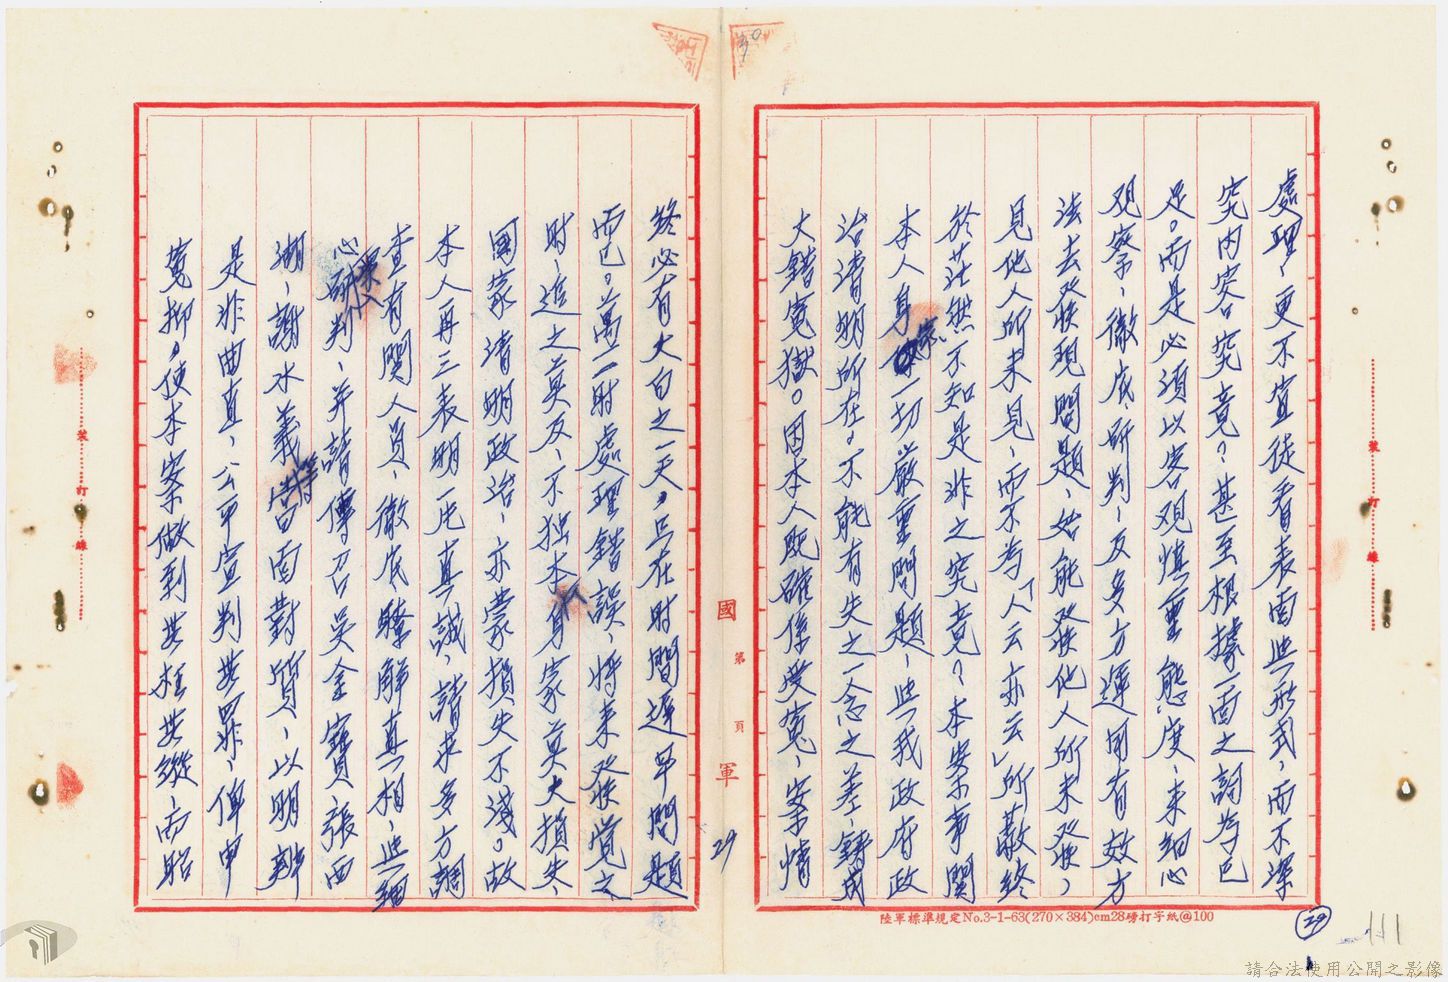 處理、更不宜徒看表面些形式，而不深
究內容究竟？甚至根據一面之詞為已
足。而是必須以客观慎重態度、来細心
观察、徹底研判、反多方運用有效方
法去发現問題、始能发他人所未发，
見他人所未見，而不為「人云亦云」所蔽終
於茫然不知是非之究竟？本案事関
本人身家一切嚴重問題、些我政府政
治清明所在。不能有失之一念之差、鑄成
大錯冤獄。因本人既確係受冤、案情
終必有大白之一天，只在时間遲早問題
而已。萬一一时處理錯誤、将来发覚之
时、追之莫及、不独本身家莫大損失、
國家清明政治、亦蒙損失不淺。故
本人再三表明一片真誠、請求多方調
查有関人員、徹底瞭解真相、些細
心研判、并請傳召吳金寶張西
湖、謝水義等當面對質、以明辨
是非曲直，公平宣判其罪、俾申
冤抑，使本案做到其枉其縱、而昭
國軍
第 頁
29
30
裝訂線
裝訂線
陸軍標準規定No.3-1-63(270×384)cm28磅打字紙@100
29
111
請合法使用公開之影像